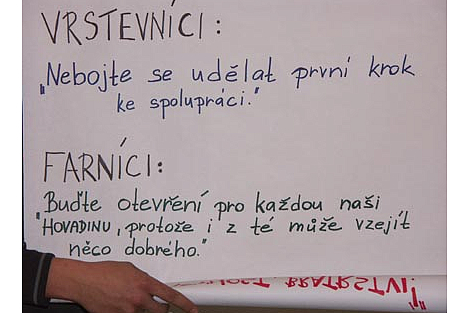 VRSTEVNÍCI:
„Nebojte se udělat první krok
ke spolupráci."
FARNÍCI:
„Buďte otevření pro každou naši
HOVADINU, protože i z té může vzejít
něco dobrého."
BRATRSTVÍ!"